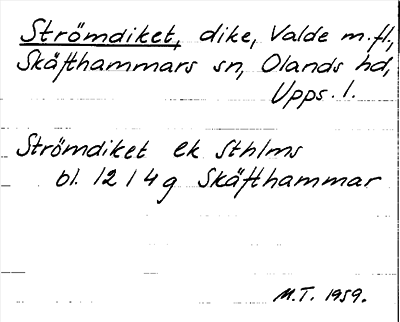 Strömdiket, dike, Valde m.fl,
Skäfthammars sn, Olands hd,
Upps. l.
Strömdiket ek Sthlms
bl. 12 I 4g Skäfthammar
M.T. 1959.